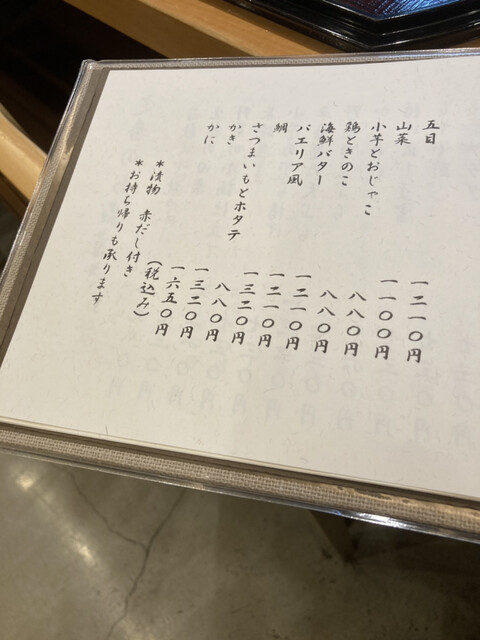 五目 一二一〇円
山菜 一一〇〇円
小芋とおじゃこ 八八〇円
鶏ときのこ 八八〇円
海鮮バター 一二一〇円
パエリア風 一二一〇円
鯛 一三二〇円
さつまいもとホタテ 八八〇円
かき 一三二〇円
かに 一六五〇円
(税込み)
*漬物 赤だし付き
*お持ち帰りも承ります